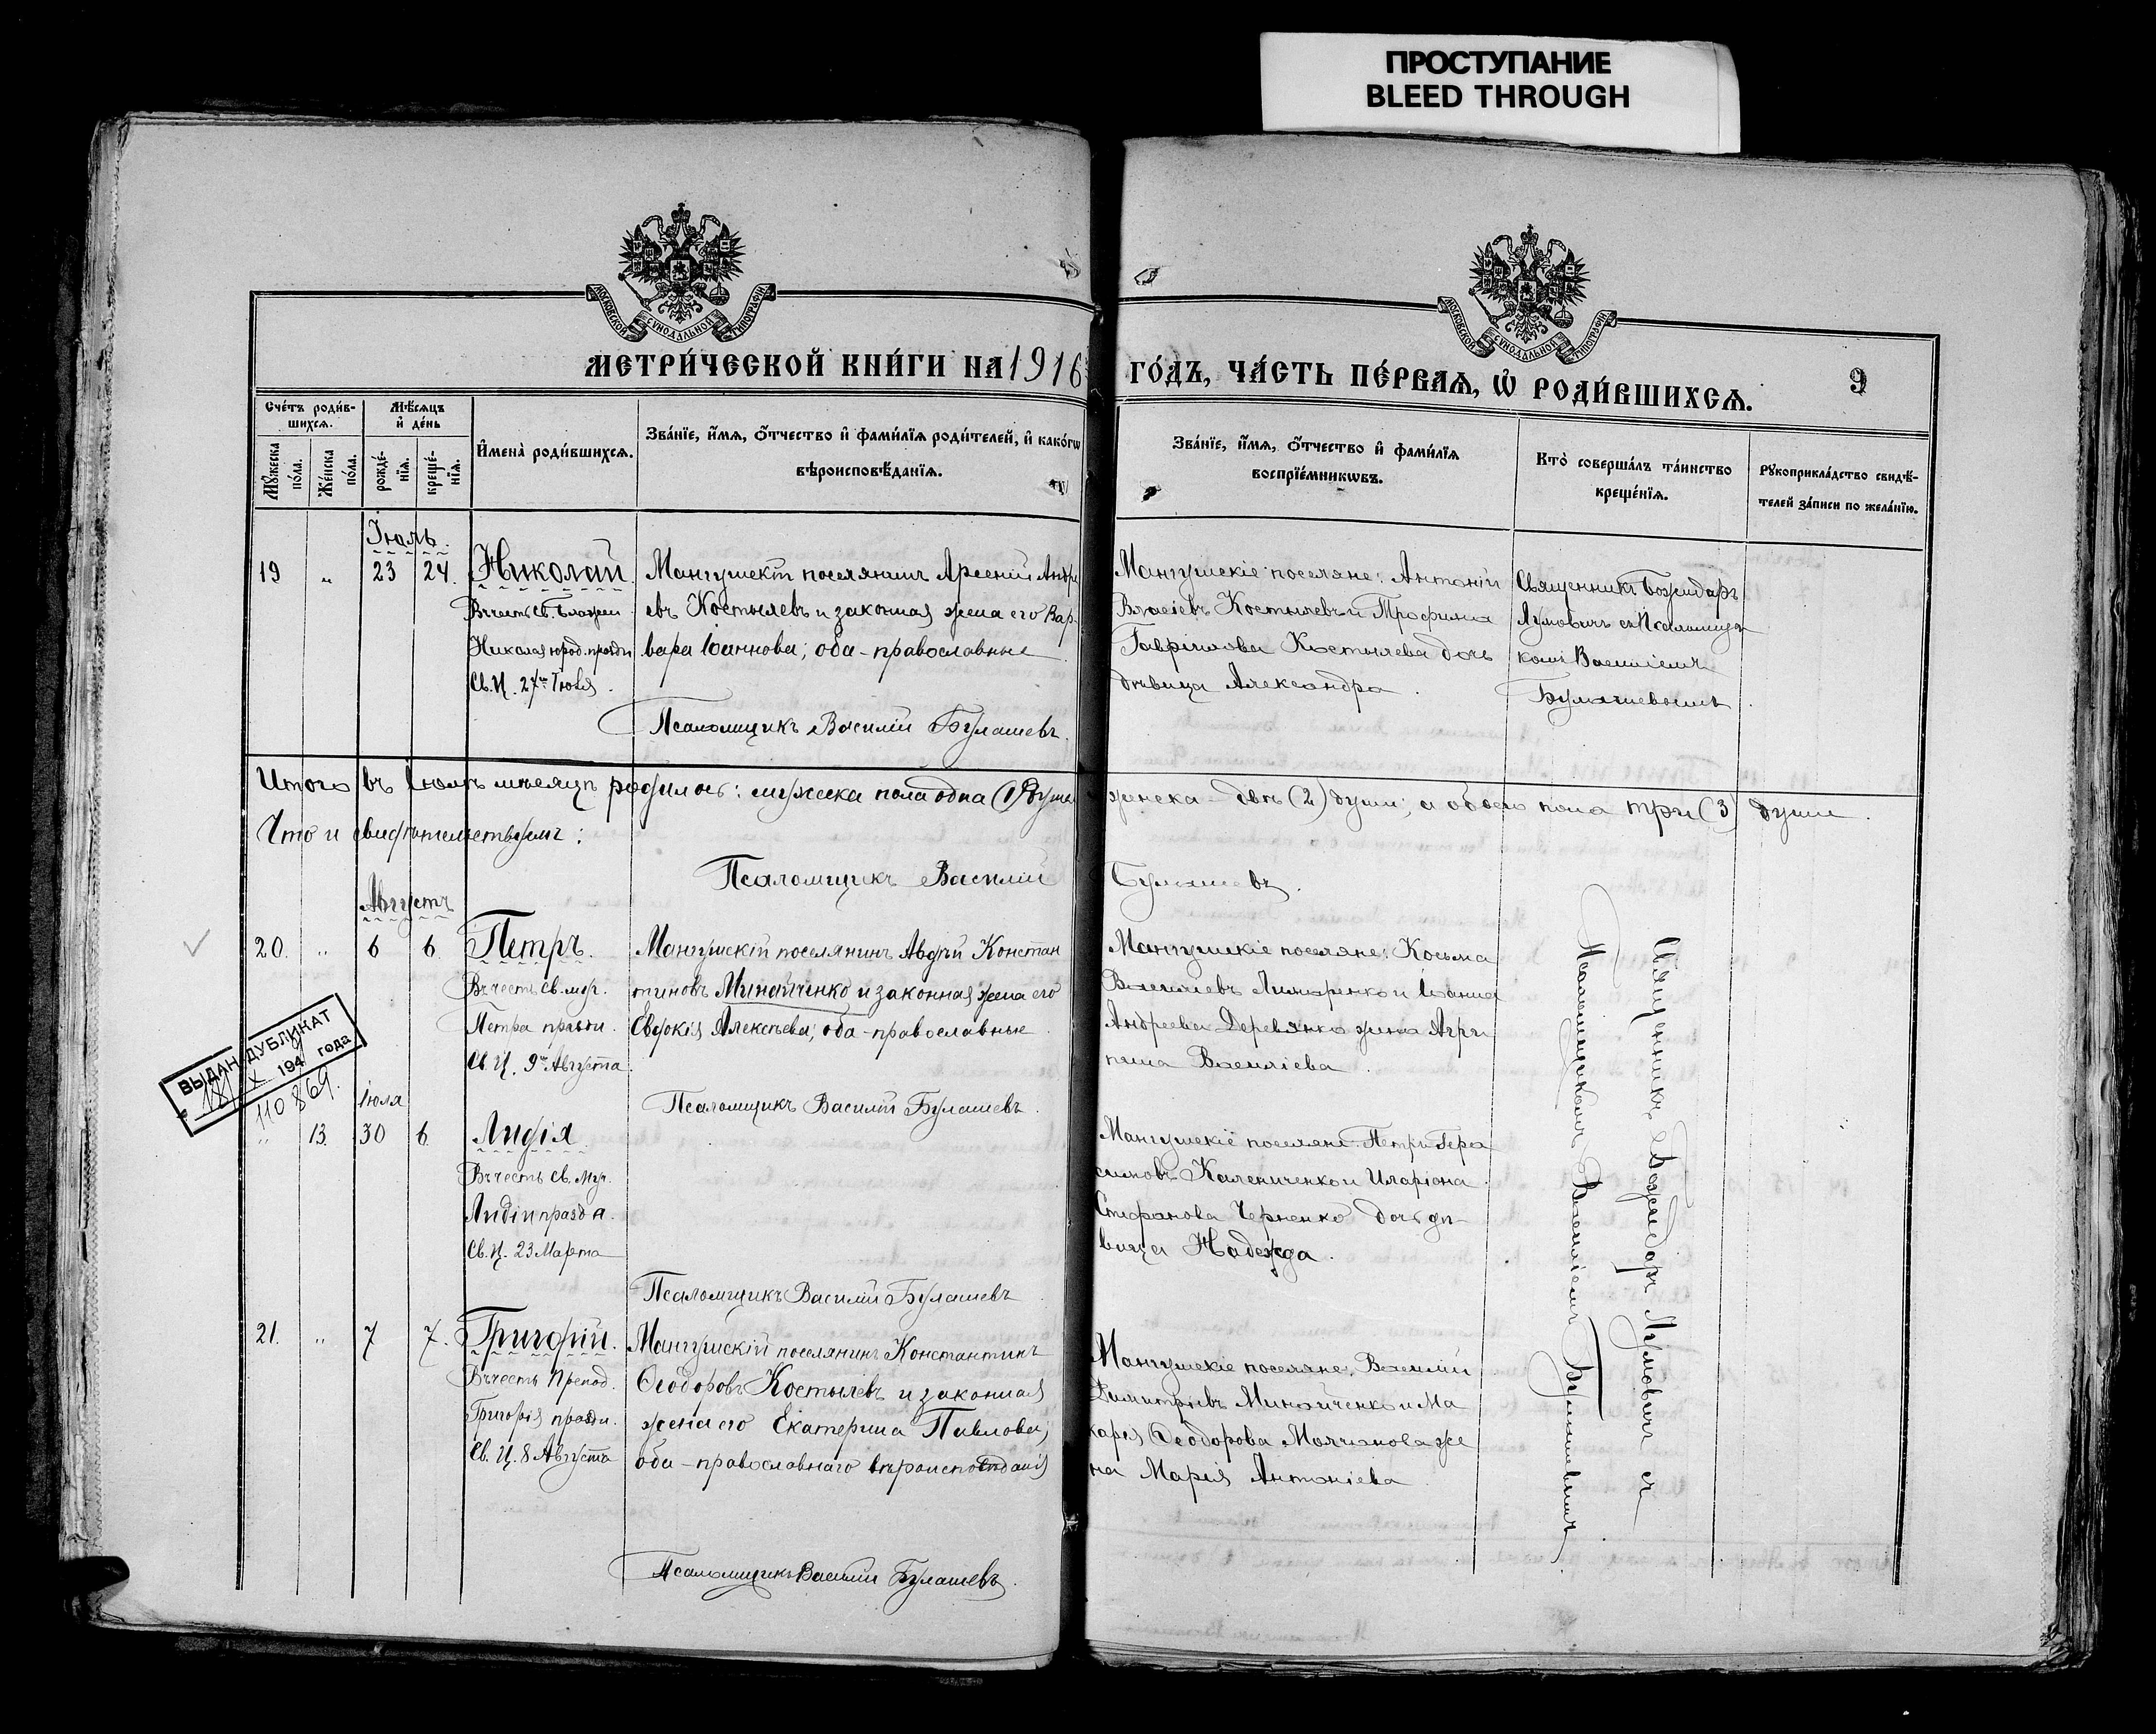 ПРОСТУПАНИЕ
BLEED THROUGH
МОСКОВСКОЙ СѴНОДАЛЬНОЙ ТИПОГРАФІИ
МОСКОВСКОЙ СѴНОДАЛЬНОЙ ТИПОГРАФІИ
МЕТРИ́ЧЕСКОЙ КНИ́ГИ НА 1916
ГО́ДЪ, ЧА́СТЬ ПЕ́РВАѦ, Ѡ҆ РОДИ́ВШИХСѦ.
9
Сче́тъ роди́в-
шихсѧ.
Мѣ́сѧцъ
и҆ де́нь
Мꙋ́жеска
по́ла.
Же́нска
по́ла.
рожде́-
нїѧ.
креще́-
нїѧ.
И҆мена̀ роди́вшихсѧ.
Зва́нїе, и҆́мѧ, ѻ҆́тчество и҆ фами́лїѧ роди́телей, и҆ како́гѡ
вѣроисповѣ́данїѧ.
Зва́нїе, и҆́мѧ, ѻ҆́тчество и҆ фами́лїѧ
воспрїе́мникѡвъ.
Кто̀ соверша́лъ та́инство
креще́нїѧ.
Рꙋкоприкла́дство свидѣ́-
телей за́писи по жела́нїю.
Іюль.
19 „ 23 24. Николай.
Въ честь Св. Блажен.
Николая юрод. празdн
Св. Ц. 27го Іюля.
Мангушскій поселянинъ Арсеній Андре
евъ Костылевъ и законная жена его Вар-
вара Іоаннова; оба - православные
Псаломщикъ Василій Булашевъ.
Мангушскіе поселяне: Антоній
Власіевъ Костылевъ и Трофима
Гавріилова Костылева дочь
дѣвица Александра.
Священникъ Божидаръ
Лумовичъ съ Псаломщи
комъ Василіемъ
Булашевымъ.
Итого въ Іюлѣ мѣсяцѣ родилось: мужска пола одна (1) душа
женска - двѣ (2) души; а обоего пола три (3) души.
Что и свидѣтельствуемъ:
Псаломщикъ Василій
Булашевъ.
Августъ
20. „ 6 6. Петръ.
Въ честь Св. муч.
Петра празdн.
Св. Ц. 9го Августа.
Мангушскій поселянинъ Авдѣй Констан
тиновъ Минайченко и законная жена его
Евдокія Алексѣева; оба - православные.
Псаломщикъ Василій Булашевъ.
Мангушскіе поселяне: Косьма
Василіевъ Лимаренко и Іоанна
Андреева Деревянко жена Агри
пина Василіева.
ВЫДАН ДУБЛИКАТ
18 X 194 года
110869.
Іюля
„ 13. 30 6. Лидія
Въ честь Св. Муч.
Лидіи празdн.
Св. Ц. 23 Марта
Псаломщикъ Василій Булашевъ
Мангушскіе поселяне: Петръ Гера
симовъ Калениченко и Иларіона
Стефанова Черненко дочь дѣ-
вица Надежда.
21. „ 7 7. Григорій.
Въ честь Препод.
Григорія празdн.
Св. Ц. 8 Августа
Мангушскій поселянинъ Константинъ
Ѳеодоровъ Костылевъ и законная
жена его Екатерина Павлова;
оба - православнаго вѣроисповѣданія
Псаломщикъ Василій Булашевъ.
Мангушскіе поселяне: Василій
Димитріевъ Минайченко и Ма
карія Ѳеодорова Молчанова же
на Марія Антоніева
Священникъ Божидаръ Лумовичъ съ
Псаломщикомъ Василіемъ Булашевымъ